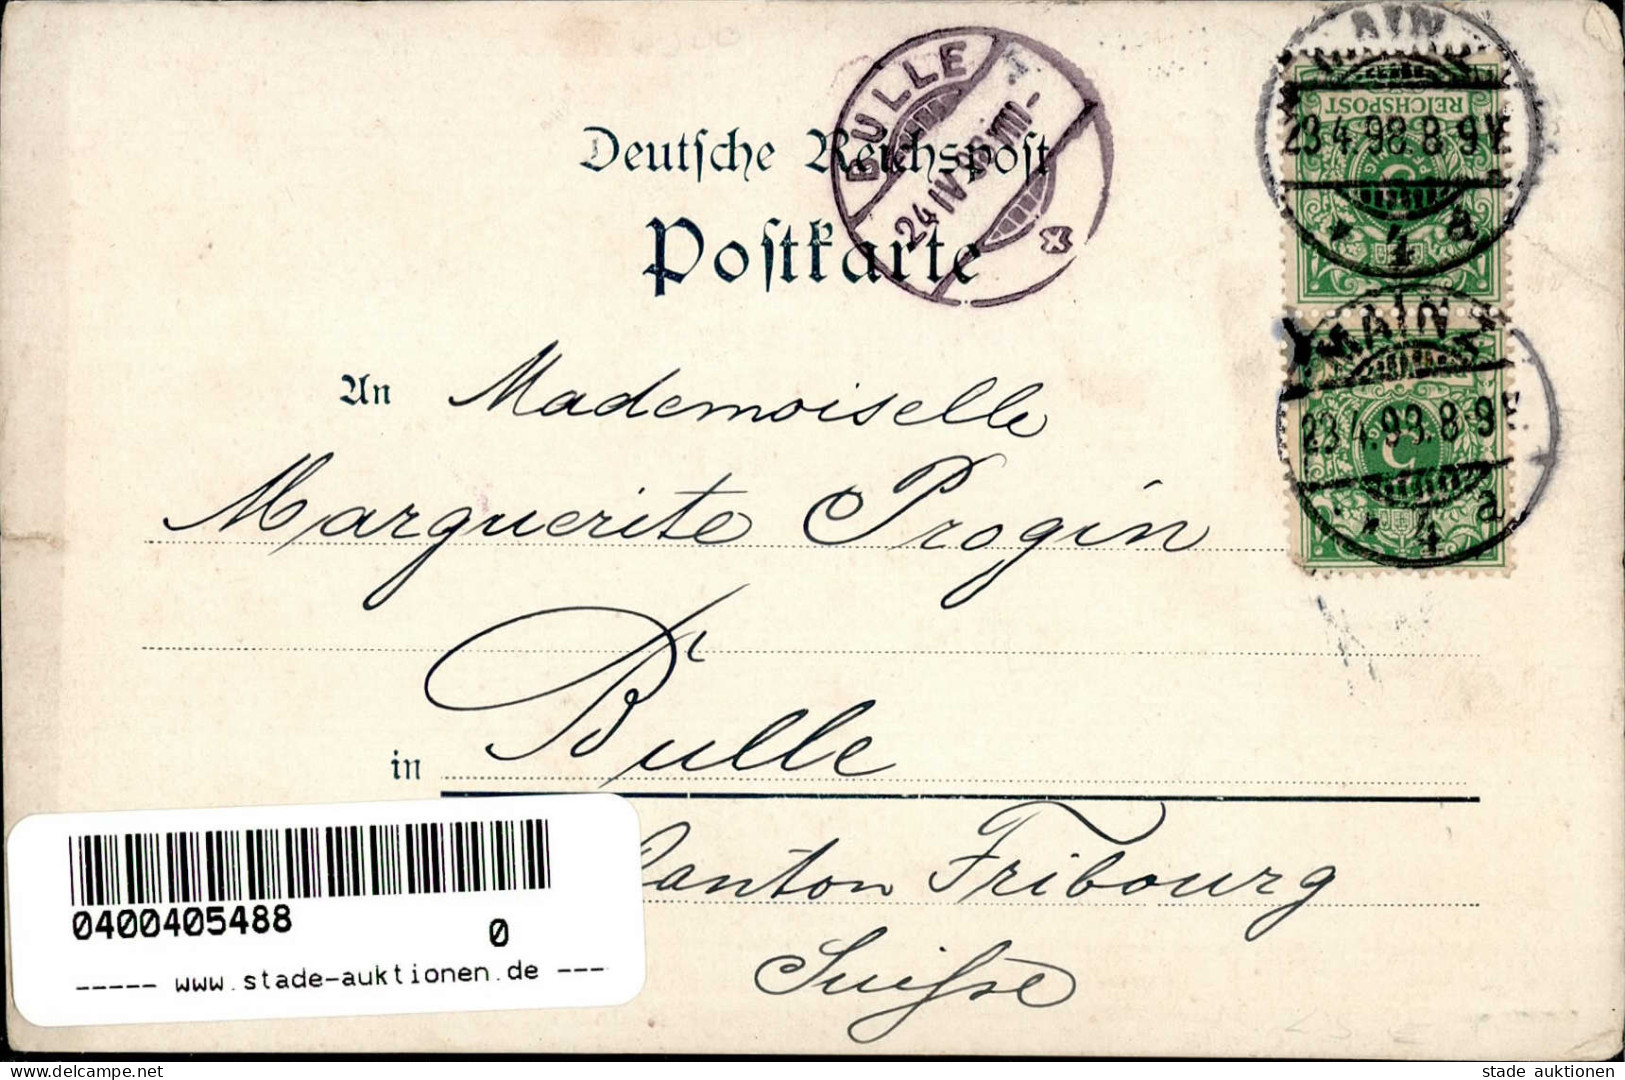 Deutsche Reichspost
Postkarte
BULLE
24 IV 98 VIII-
REICHSPOST
MAINZ
23.4.98.8-9V.
* 4 a
MAINZ
23.4.98.8-9V.
* 4 a
An Mademoiselle
Marguerite Progin
in Bulle
Canton Fribourg
Suisse
0400405488
0
----- www.stade-auktionen.de ---
stade auktionen